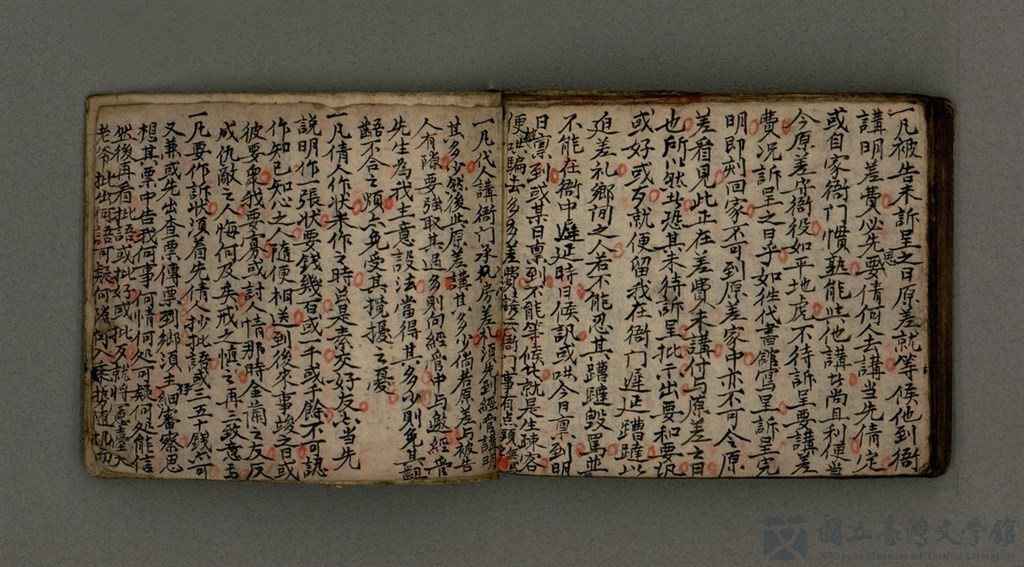 一凡被告未訴呈之日原差就等候他到衙
講明差費必先要倩何人去講當先倩定
或自家衙门慣熟能與他講豈尚且利便當
今原差守衙役如平地虎不待訴呈要講差
費人况訴呈之日乎如往代書館寫呈訴呈完
明即刻回家不可到原差家中亦不可令原
差看見此正在差費未講付與原差之日
也所以然者恐其未待訴呈批示出要和要訊
或好或歹就便留我在衙门遲延蹧蹋以
迫差礼鄉间之人若不能忍其蹧蹋毀罵並
不能在衙中遲延時日候訊或哄今日禀到明
日禀到或某日禀到不能等候此就是生疎客
便騙去多多差費
一凡代人講衙门承執房差礼須先到經管講
其多少然後此原差講其多少倘若原差與被告
人有隙要強取其過多則向經管中與邀經管
先生為我主意設法當得其多少則免其齟
齬不合之煩亦免受其擾擾之憂
一凡倩人作状未作之時豈是泰交好友亦當先
說明作一張状要錢幾百或一千或千餘不可認
作知已知心之人隨便相送到後來事竣之日或
彼要與我要寡或討人情那時金蘭之友反
成仇敵之人悔何及矣戒之慎之再三致意焉
一凡要作訴状須着先倩人抄批語或三五十錢不可
又兼或先出查票傳票到鄉須主細審察思
相其票中告我何事何情何处可疑何处能信
然後再看批語或批好或批歹
老爺批出何語何疑
國立臺灣文學館
National Museum of Taiwan Literature